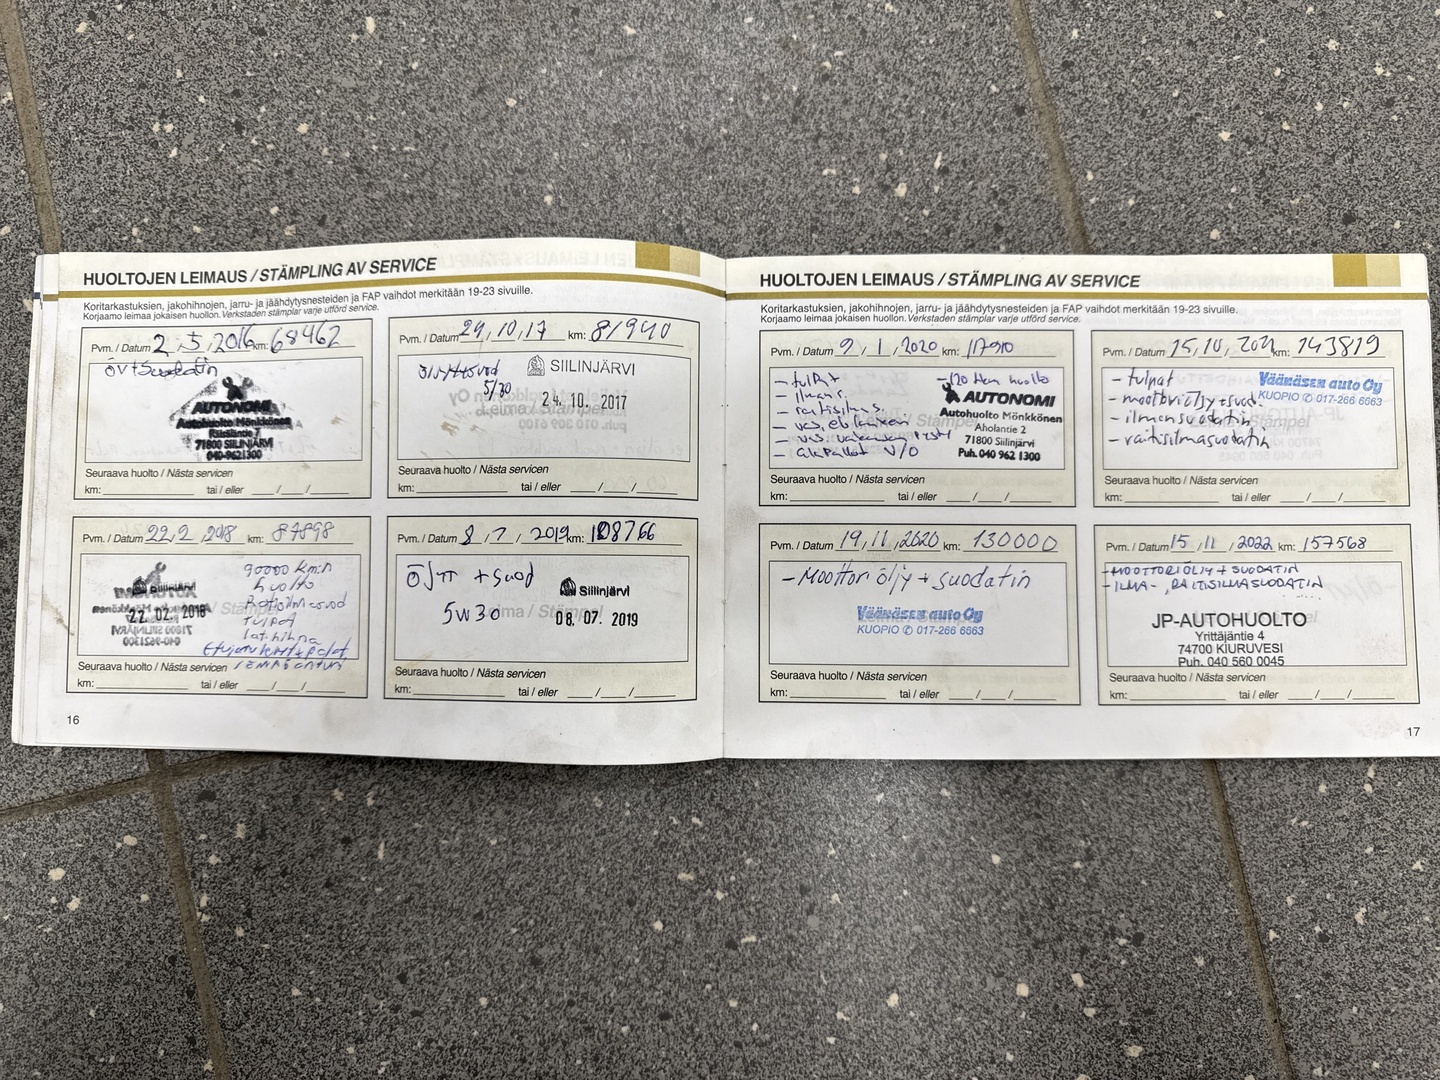 HUOLTOJEN LEIMAUS / STÄMPLING AV SERVICE
Koritarkastuksien, jakohihnojen, jarru- ja jäähdytysnesteiden ja FAP vaihdot merkitään 19-23 sivuille.
Korjaamo leimaa jokaisen huollon. Verkstaden stämplar varje utförd service.
Pvm. / Datum 2,5,2016 km: 68462
öv+Suodatin
AUTONOMI
Autohuolto Mönkkönen
71800 SIILINJÄRVI
040-9621300
Seuraava huolto / Nästa servicen
km: tai / eller / /
Pvm. / Datum 24,10,17 km: 81940
5/30
SIILINJÄRVI
24. 10. 2017
Seuraava huolto / Nästa servicen
km: tai / eller / /
Pvm. / Datum 22,2,2018 km: 87898
Siilinjärvi
22. 02. 2018
90000 km:n
huolto
tulpat
lat.hihna
Seuraava huolto / Nästa servicen
km: tai / eller / /
Pvm. / Datum 8,7,2019 km: 108766
+ suod
5w30
Siilinjärvi
08. 07. 2019
Seuraava huolto / Nästa servicen
km: tai / eller / /
16
HUOLTOJEN LEIMAUS / STÄMPLING AV SERVICE
Koritarkastuksien, jakohihnojen, jarru- ja jäähdytysnesteiden ja FAP vaihdot merkitään 19-23 sivuille.
Korjaamo leimaa jokaisen huollon. Verkstaden stämplar varje utförd service.
Pvm. / Datum 9,1,2020 km: 117910
- tulpat
- ilmans.
- raitisilm.s.
- 120 tkm huolto
AUTONOMI
Autohuolto Mönkkönen
Aholantie 2
71800 Siilinjärvi
Puh. 040 962 1300
- alapallot V/O
Seuraava huolto / Nästa servicen
km: tai / eller / /
Pvm. / Datum 15,10,2021 km: 143819
- tulpat
- moottoriöljy+suod.
- ilmansuodatin
- raitisilmasuodatin
Väänäsen auto Oy
KUOPIO ✆ 017-266 6663
Seuraava huolto / Nästa servicen
km: tai / eller / /
Pvm. / Datum 19,11,2020 km: 130000
- Moottoriöljy + suodatin
Väänäsen auto Oy
KUOPIO ✆ 017-266 6663
Seuraava huolto / Nästa servicen
km: tai / eller / /
Pvm. / Datum 15,11,2022 km: 157568
-MOOTTORIÖLJY + SUODATIN
-ILMA-, RAITISILMASUODATIN
JP-AUTOHUOLTO
Yrittäjäntie 4
74700 KIURUVESI
Puh. 040 560 0045
Seuraava huolto / Nästa servicen
km: tai / eller / /
17